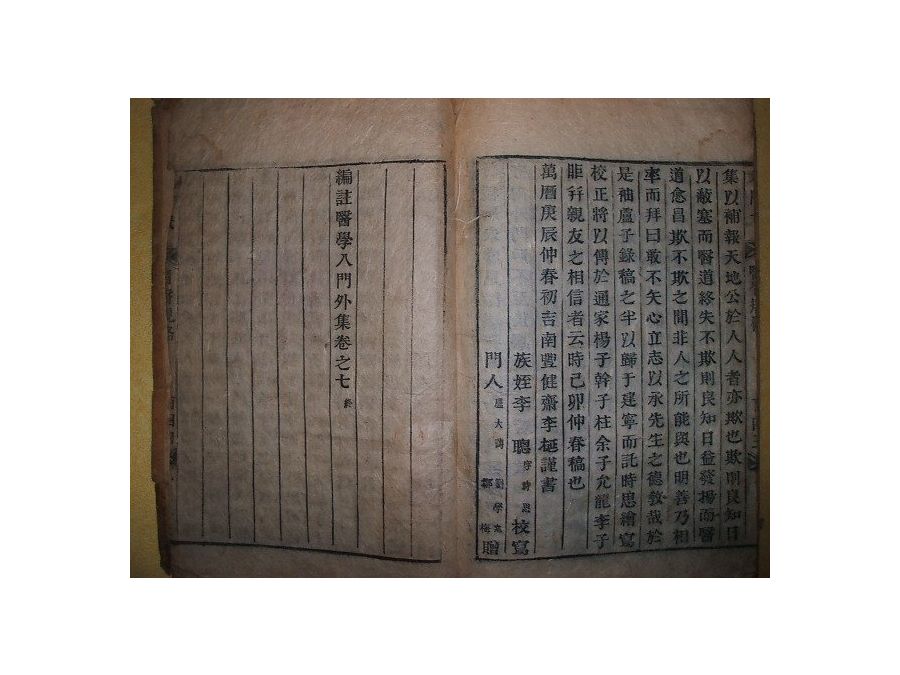 集以補報天地公於人人者亦欺也欺則良知日
以蔽塞而醫道終失不欺則良知日益發揚而醫
道愈昌欺不欺之間非人之所能與也明善乃相
率而拜曰敢不矢心立志以永先生之德教哉於
是袖盧子錄稿之半以歸于建寧而託時思繪寫
校正將以傳於通家楊子幹子柱余子允龍李子
并親友之相信者云時己卯仲春稿也
萬曆庚辰仲春初吉南豐健齋李梴謹書
族姪李聰字時思校寫
門人 盧大謨 劉學 鄒梅 贈
編註醫學入門外集卷之七終